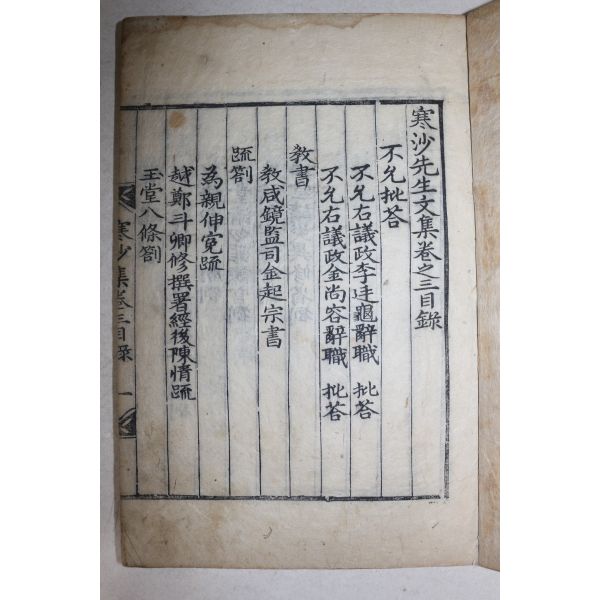 寒沙先生文集卷之三目錄
不允批荅
不允右議政李廷龜辭職 批荅
不允右議政金尚容辭職 批荅
教書
教咸鏡監司金起宗書
疏劄
為親伸寃疏
越鄭斗卿修撰署經後陳情疏
玉堂八條劄
寒沙集卷三目录 一